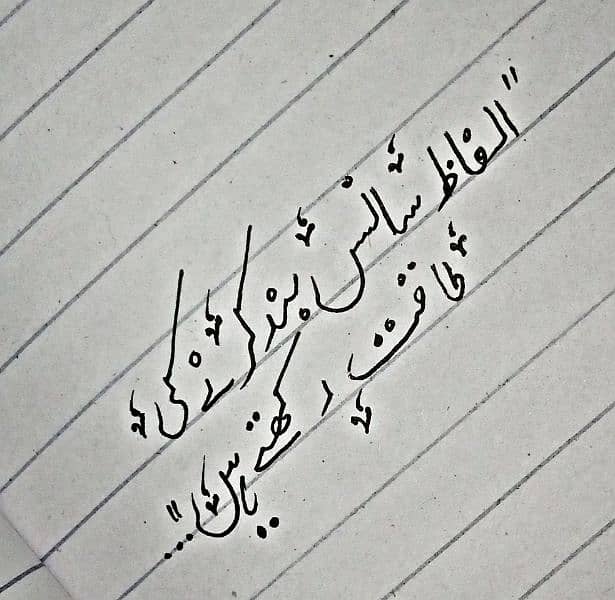 "الفاظ سانس بند کرنے کی
طاقت رکھتے ہیں"...